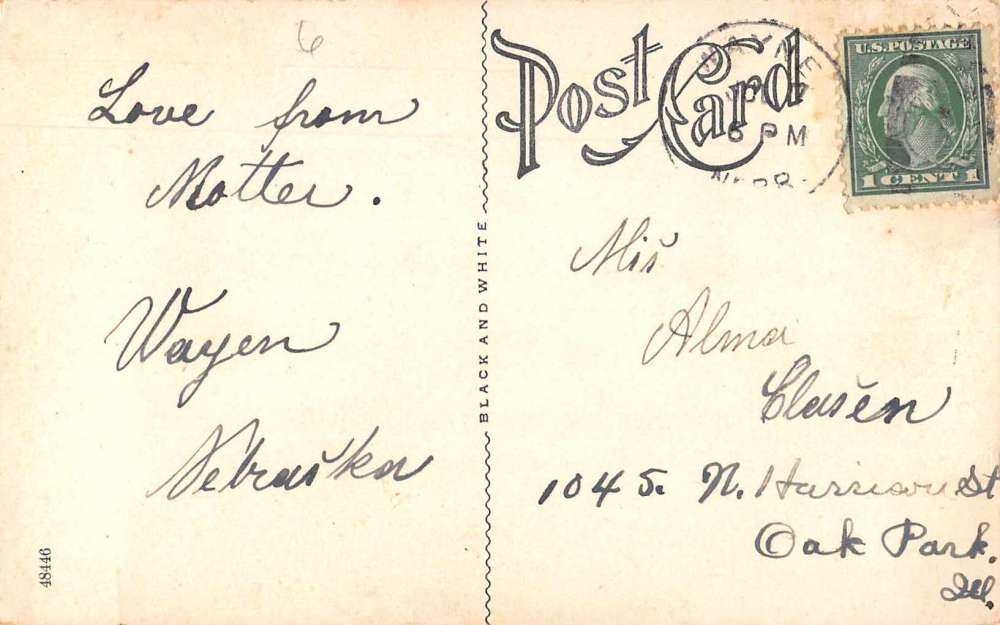 6
Love from
Motter.
Wayen
Nebraska
48446
BLACK AND WHITE
Post Card
WAYNE
6 PM
NEBR
U.S. POSTAGE
1 CENT 1
Mis
Alma
Clasen
1045. N. Harrison St
Oak Park.
Ill.